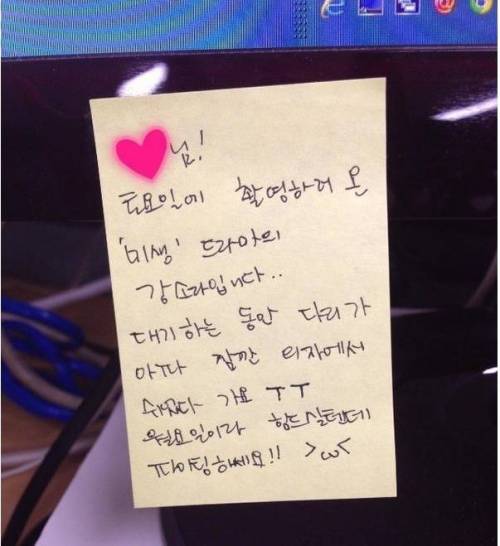 님!
토요일에 촬영하러 온
'미생' 드라마의
강소라입니다..
대기하는 동안 다리가
아파 잠깐 의자에서
쉬었다 가요 ㅜㅜ
월요일이라 힘드실텐데
파이팅하세요!! >ω<